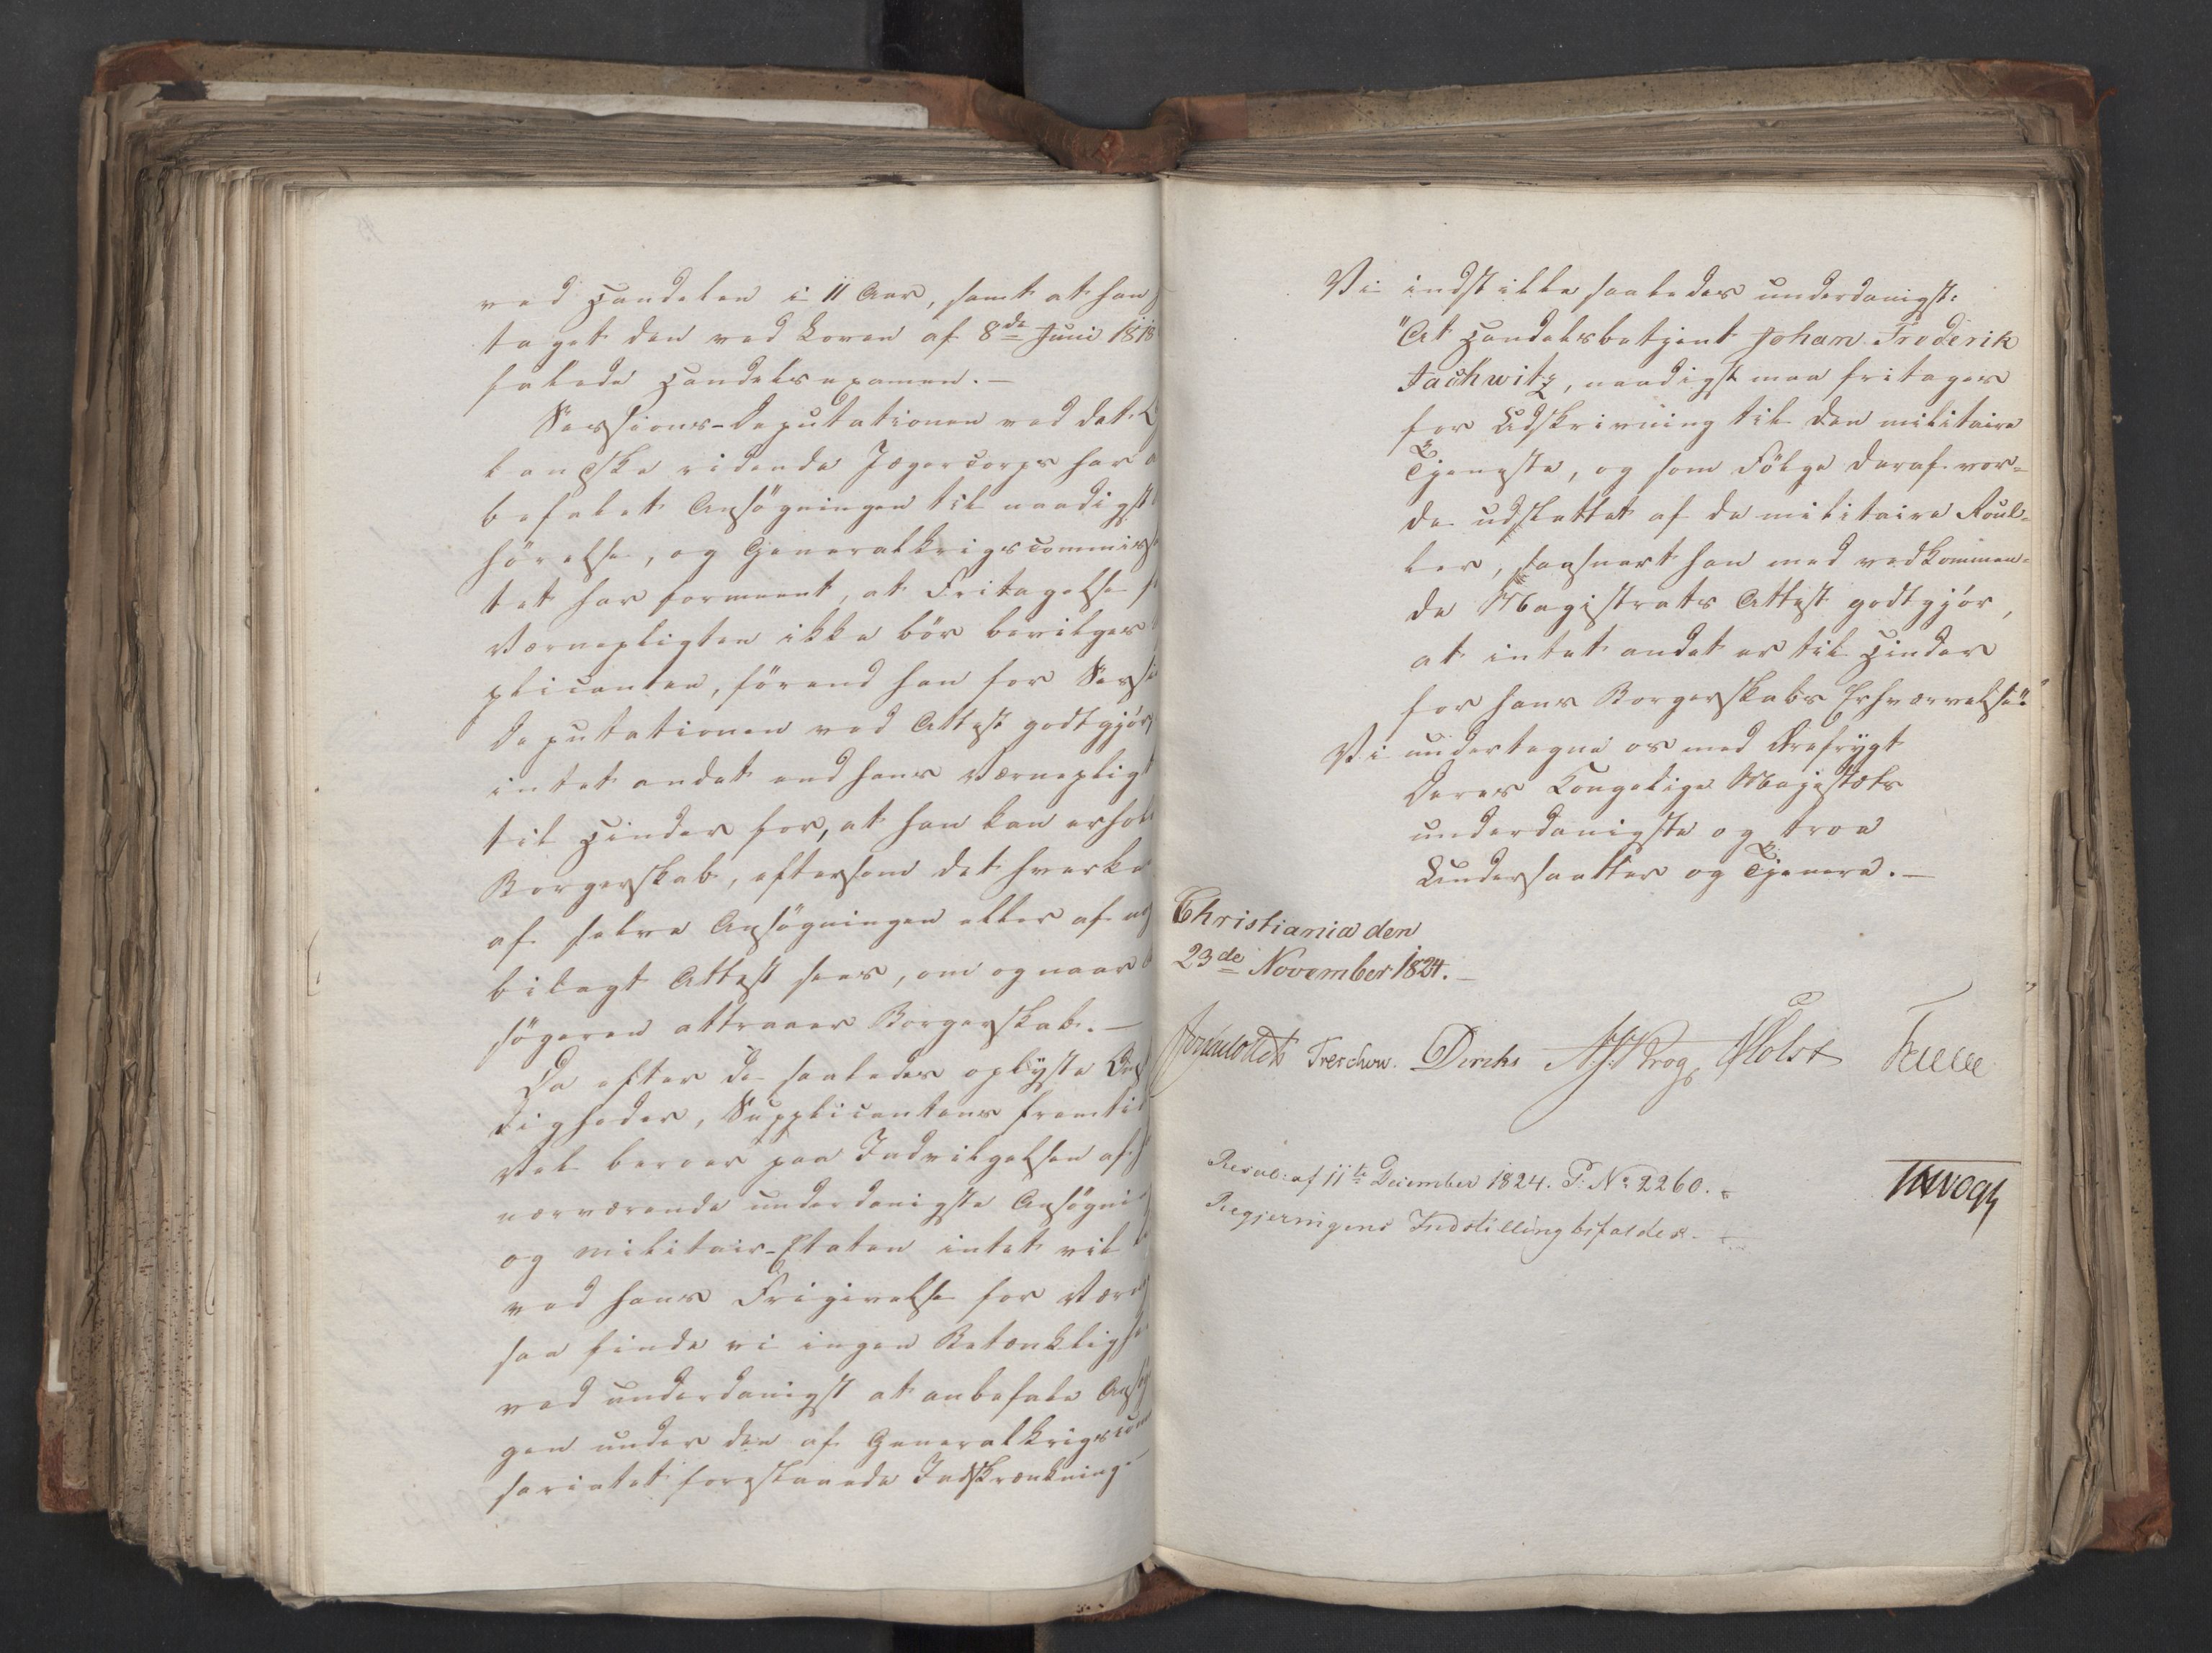 ved Handelen i 11 Aar, samt at han
taget den ved Loven af 8de Juni 1818
falede Handelsexamen.-
Sessions-Deputationen ved det
landske ridende Jægercorps har
befalet Ansøgningen til naadigst
hørelse, og Generalkrigscommiss
tet har formeent, at Fritagelse
Værnepligten ikke bør bevilges
plicanten, førend han for Sessi
Deputationen ved Attest godtgjør,
intet andet end hans Værnepligt
til Hinder for, at han kan erhol
Borgerskab, eftersom det hverke
af selve Ansøgningen eller af
bilagt Attest sees, om og naar
søgeren attraaer Borgerskab.-
Da efter de saaledes oplyste
digheder, Supplicantens fremtid
Vel beroer paa Indvilgelsen af
nærværende underdanigste Ansøgni
og Militair-Etaten intet vil
ved hans Frigivelse for Vær
saa finde vi ingen Betænkligh
ved underdanigst at anbefale Ansøg
gen under den af Generalkrigscom
sariatet foreslaaede Indskrænkning
Vi indstille saaledes underdanigst:
"At Handelsbetjent Johan Frederik
Jachwitz, naadigst maa fritages
for Udskrivning til den militaire
Tjeneste, og som Følge deraf vor-
de udslettet af de militaire Roul-
ler, saasnart han med vedkommen-
de Magistrats Attest godtgjør,
at intet andet er til Hinder
for hans Borgerskabs Erhværvelse."
Vi undertegne os med Ærefrygt
Deres Kongelige Majestæts
underdanigste og troe
Undersaatter og Tjenere.-
Christiania den
23de November 1824.-
Treschow. Diriks Krog Holst
Resol: af 11te December 1824. P. No 2260.
Regjeringens Indstilling bifaldes.
JHVogt